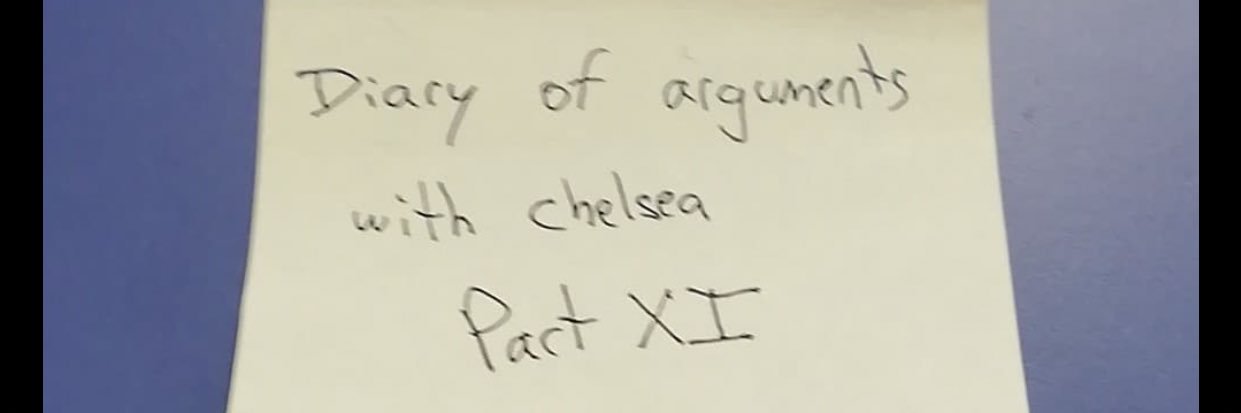 Diary of arguments
with chelsea
Part XI